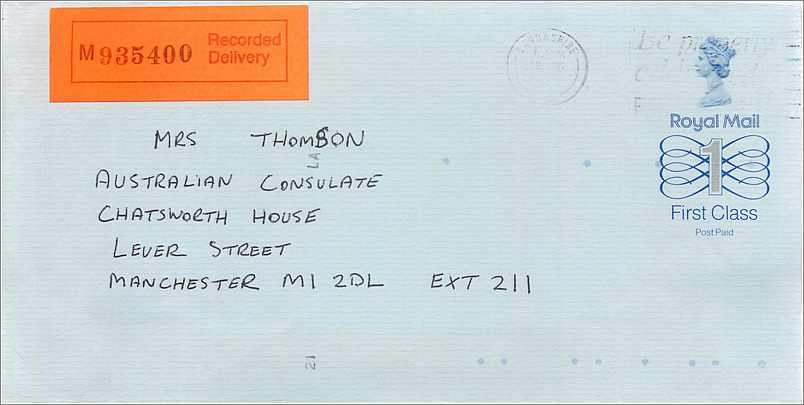 M935400 Recorded
Delivery
Be properly
Royal Mail
1
First Class
Post Paid
MRS THOMSON
LA
AUSTRALIAN CONSULATE
CHATSWORTH HOUSE
LEVER STREET
MANCHESTER M1 2DL EXT 211
21